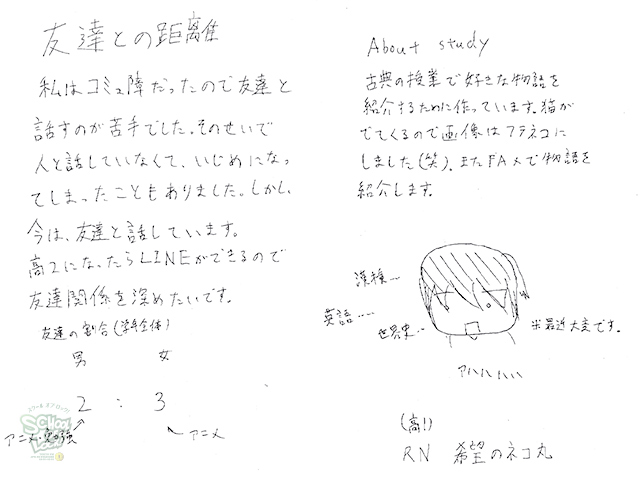 友達との距離
私はコミュ障だったので友達と
話すのが苦手でした。そのせいで
人と話していなくて、いじめになっ
てしまったこともありました。しかし、
今は、友達と話しています。
高2になったらLINEができるので
友達関係を深めたいです。
友達の割合(学年全体)
男 女
2 : 3
アニメ・勉強 アニメ
About study
古典の授業で好きな物語を
紹介するために作っています。猫が
でてくるので画像はフテネコに
しました(笑)。またFAXで物語を
紹介します。
漢検…
英語……
世界史…
※最近大変です。
アハハハハ
(高1)
RN 希望のネコ丸
SCHOOL OF LOCK!